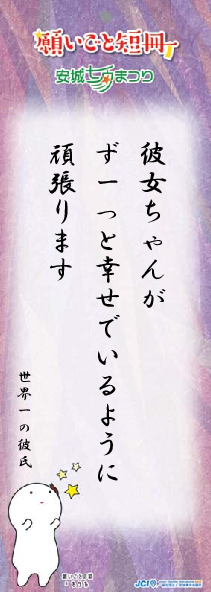 願いごと短冊
安城七夕まつり
彼女ちゃんが
ずーっと幸せでいるように
頑張ります
世界一の彼氏
JCI